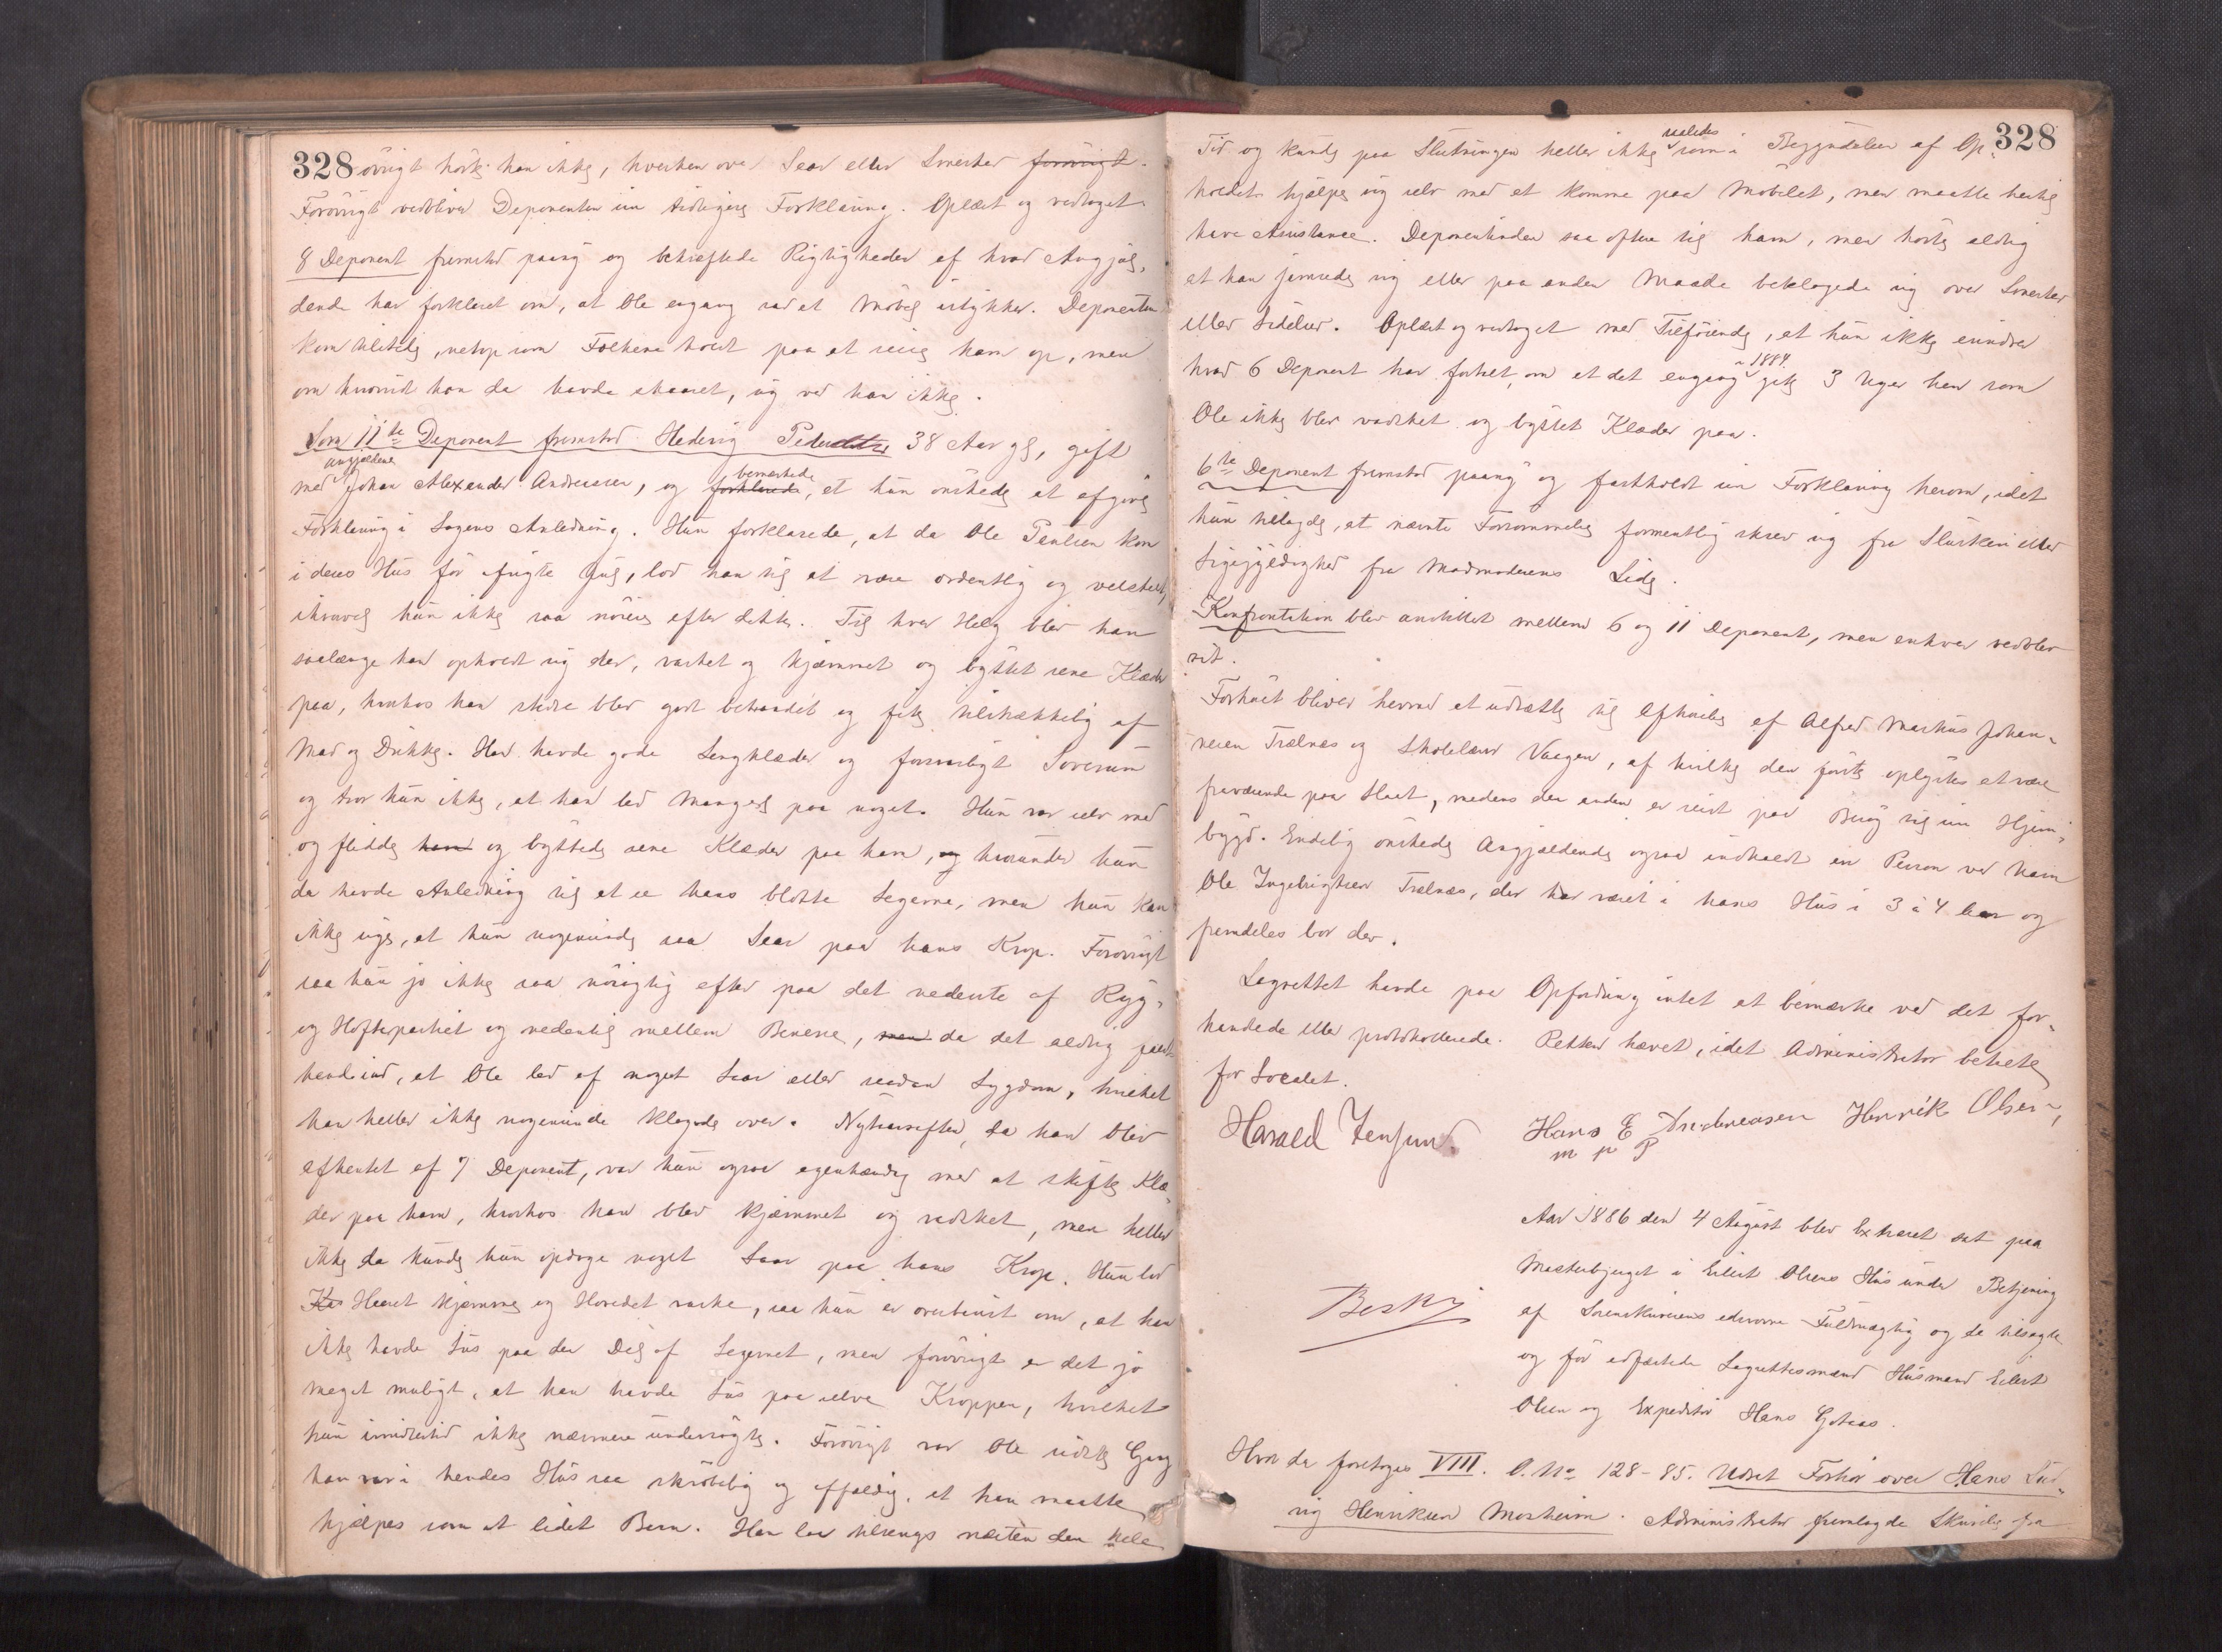 328
övrigt hörte han ikke, hverken over Saar eller Smerter forövrigt.
Forövrigt vedbliver Deponenten sin tidligere Forklaring. Oplæst og vedtaget.
8 Deponent fremstod paany og bekræftede Rigtigheden af hvad Angjæl-
dende har forklaret om, at Ole engang var et Möbel ustykker. Deponenten
kom tilstede, netop som Folkene holdt paa at reise ham op, men
om hvorvidt han da havde skaaret, sig ved han ikke.
Som 11te Deponent fremstod Hedevig Pedersdtr 38 Aar gl, gift
angjældende
med Johan Alexander Andreassen, og forklarede bemærkede, at hun önskede at afgive
Forklaring i Sagens Anledning. Hun forklarede, at da Ole Paulsen kom
i deres Hus för afvigte Jul, lod han til at være ordentlig og velstelt,
ihvorvel hun ikke saa nöiere efter dette. Til hver Helg blev han
saalænge han opholdt sig der, vasket og kjæmmet og byttet rene Klæder
paa, hvorhos han stedse blev godt behandlet og fik tilstrækkelig af
Mad og Drikke. Han havde gode Sengklæder og forsvarligt Soverum
og tror hun ikke, at han led Mangel paa noget. Hun var selv med
og fliddde ham og byttede rene Klæder paa ham, og hvorunder hun
da havde Anledning til at se hans blotte Legeme, men hun kan
ikke sige, at hun nogensinde saa Saar paa hans Krop. Forövrigt
saa hun jo ikke saa nöiagtig efter paa det nederste af Ryg-
og Hoftepartiet og nedentil mellem Benene, men da det aldrig faldt
hende ind, at Ole led af noget Saar eller saadan Sygdom, hvilket
han heller ikke nogensinde klagede over. Nytaarsaften, da han blev
afhentet af 7 Deponent, var hun ogsaa egenhændig med at skifte Klæ-
der paa ham, hvorhos han blev kjæmmet og vadsket, men heller
ikke da kunde hun opdage noget Saar paa hans Krop. Hun lod
Haaret kjæmme og Hovedet vaske, saa hun er overbevist om, at han
ikke havde Lus paa den Del af Legemet, men forövrigt er det jo
meget muligt, at han havde Lus paa selve Kroppen, hvilket
hun imidlertid ikke nærmere undersögte. Forövrigt var Ole sidste Gang
han var i hendes Hus saa skröbelig og affældig, at han maatte
hjælpes som et lidet Barn. Han laa tilsengs næsten den hele
328
Tid og kunde paa Slutningen heller ikke saaledes som i Begyndelsen af Op-
holdet hjælpe sig selv med at komme paa Möbelet, men maatte hertil
have Assistance. Deponentinden saa oftere til ham, men hörte aldrig
at han jamrede sig eller paa anden Maade beklagede sig over Smerter
eller Lidelser. Oplæst og vedtaget med Tilföiende, at hun ikke erindrer
hvad 6 Deponent har fortalt, om at det engang i 1884 gik 3 Uger hen som
Ole ikke blev vadsket og byttet Klæder paa.
6te Deponent fremstod paany og fastholdt sin Forklaring herom, idet
hun tillagde, at nævnte Forsömmelse formentlig skrev sig fra Slurkeri eller
Ligegyldighed fra Madmoderens Side.
Konfrontation blev anstillet mellem 6 og 11 Deponent, men enhver vedblev
sit.
Forhöret bliver herved at udsætte til Afhörelse af Alfred Markus Johan-
nesen Trælnes og Skolelærer Vaagen, af hvilke den förste oplystes at være
fraværende paa Slaat, medens den anden er reist paa Besög til sin Hjem-
bygd. Endelig önskede Angjældende ogsaa indkaldt en Person ved Navn
Ole Ingebrigtsen Trælnæs, der har været i hans Hus i 3 à 4 Aar og
fremdeles bor der.
Lagrettet havde paa Opfordring intet at bemærke ved det for-
handlede eller protokollerede. Retten hævet, idet Administrator betalte
for Localet.
Harald Jensen. Hans E Andreasen Henrik Olsen,
m p P
Aar 1886 den 4 August blev Extraret sat paa
Mosterbjerget i Eilert Olsens Hus under Betjening
af Sorenskriverens edsvorne Fuldmægtig og de tilsagte
og för edfæstede Lagrettesmænd Husmand Eilert
Olsen og Expeditör Hans Gotaas.
Hvor da foretoges VIII. O. No 128-85. Udsat Forhör over Hans Lud-
vig Henriksen Mosheim. Administrator fremlagde Skrivelse fra